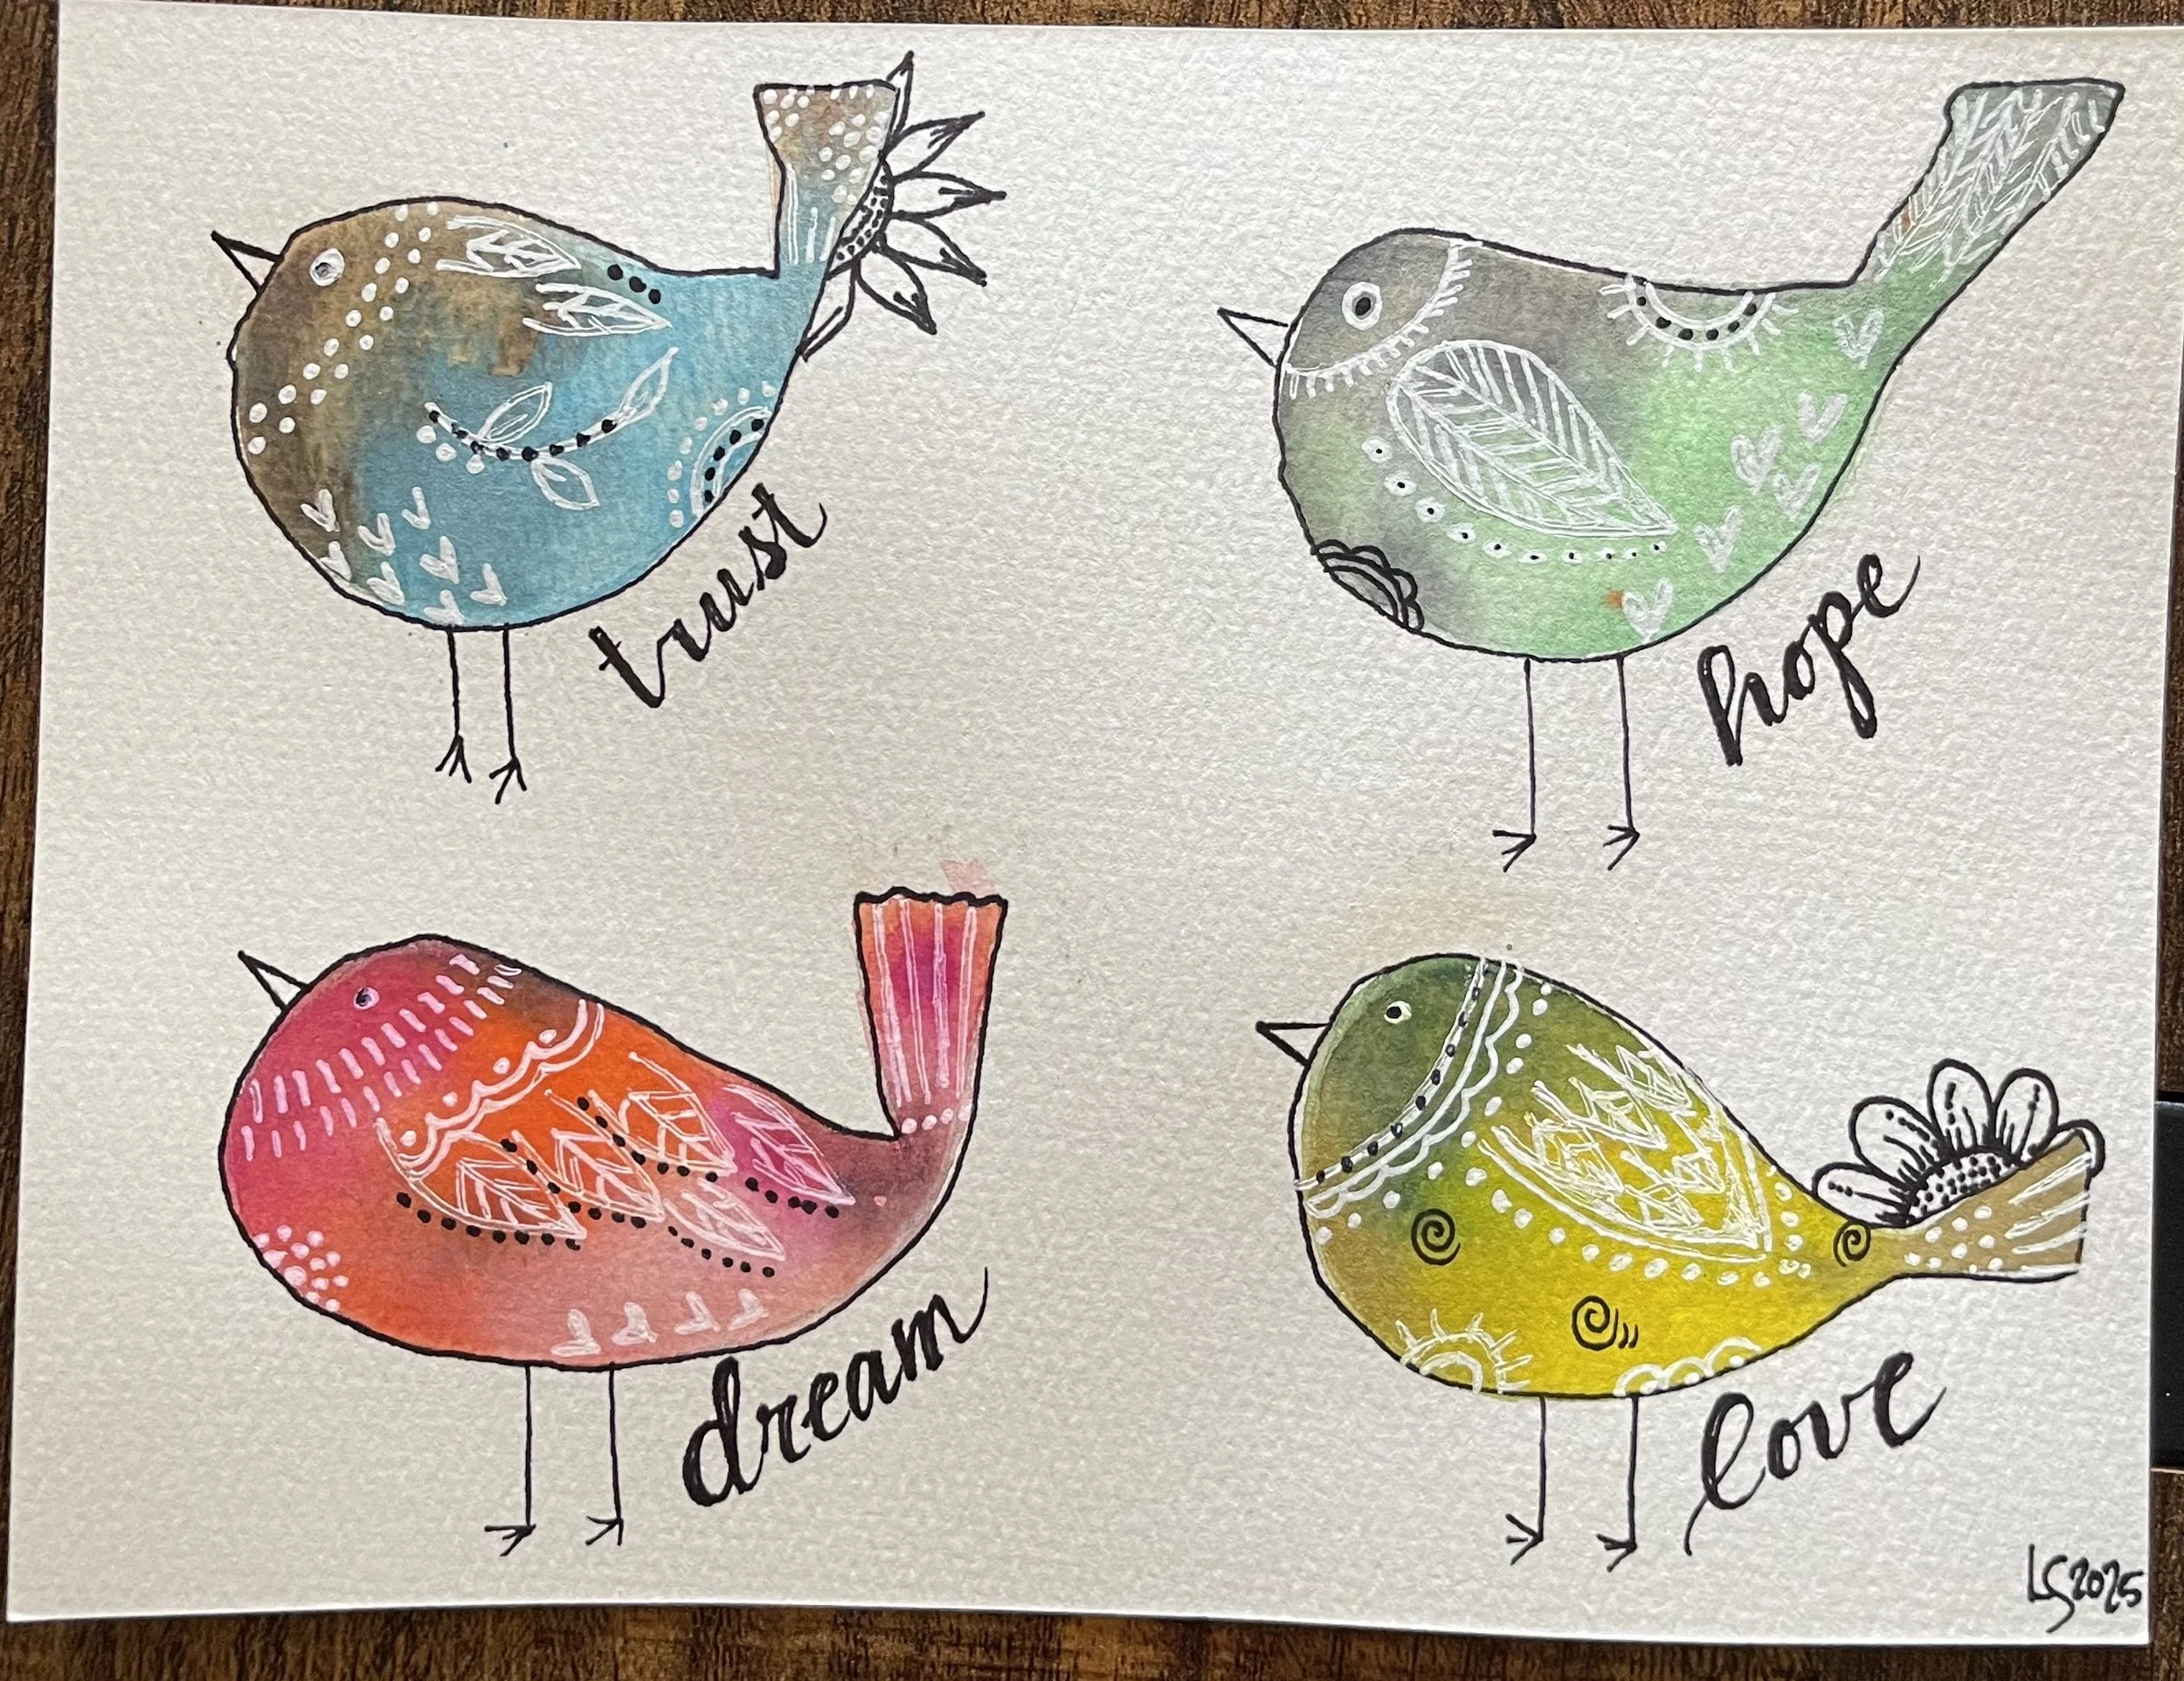 trust
hope
dream
love
LS 2025